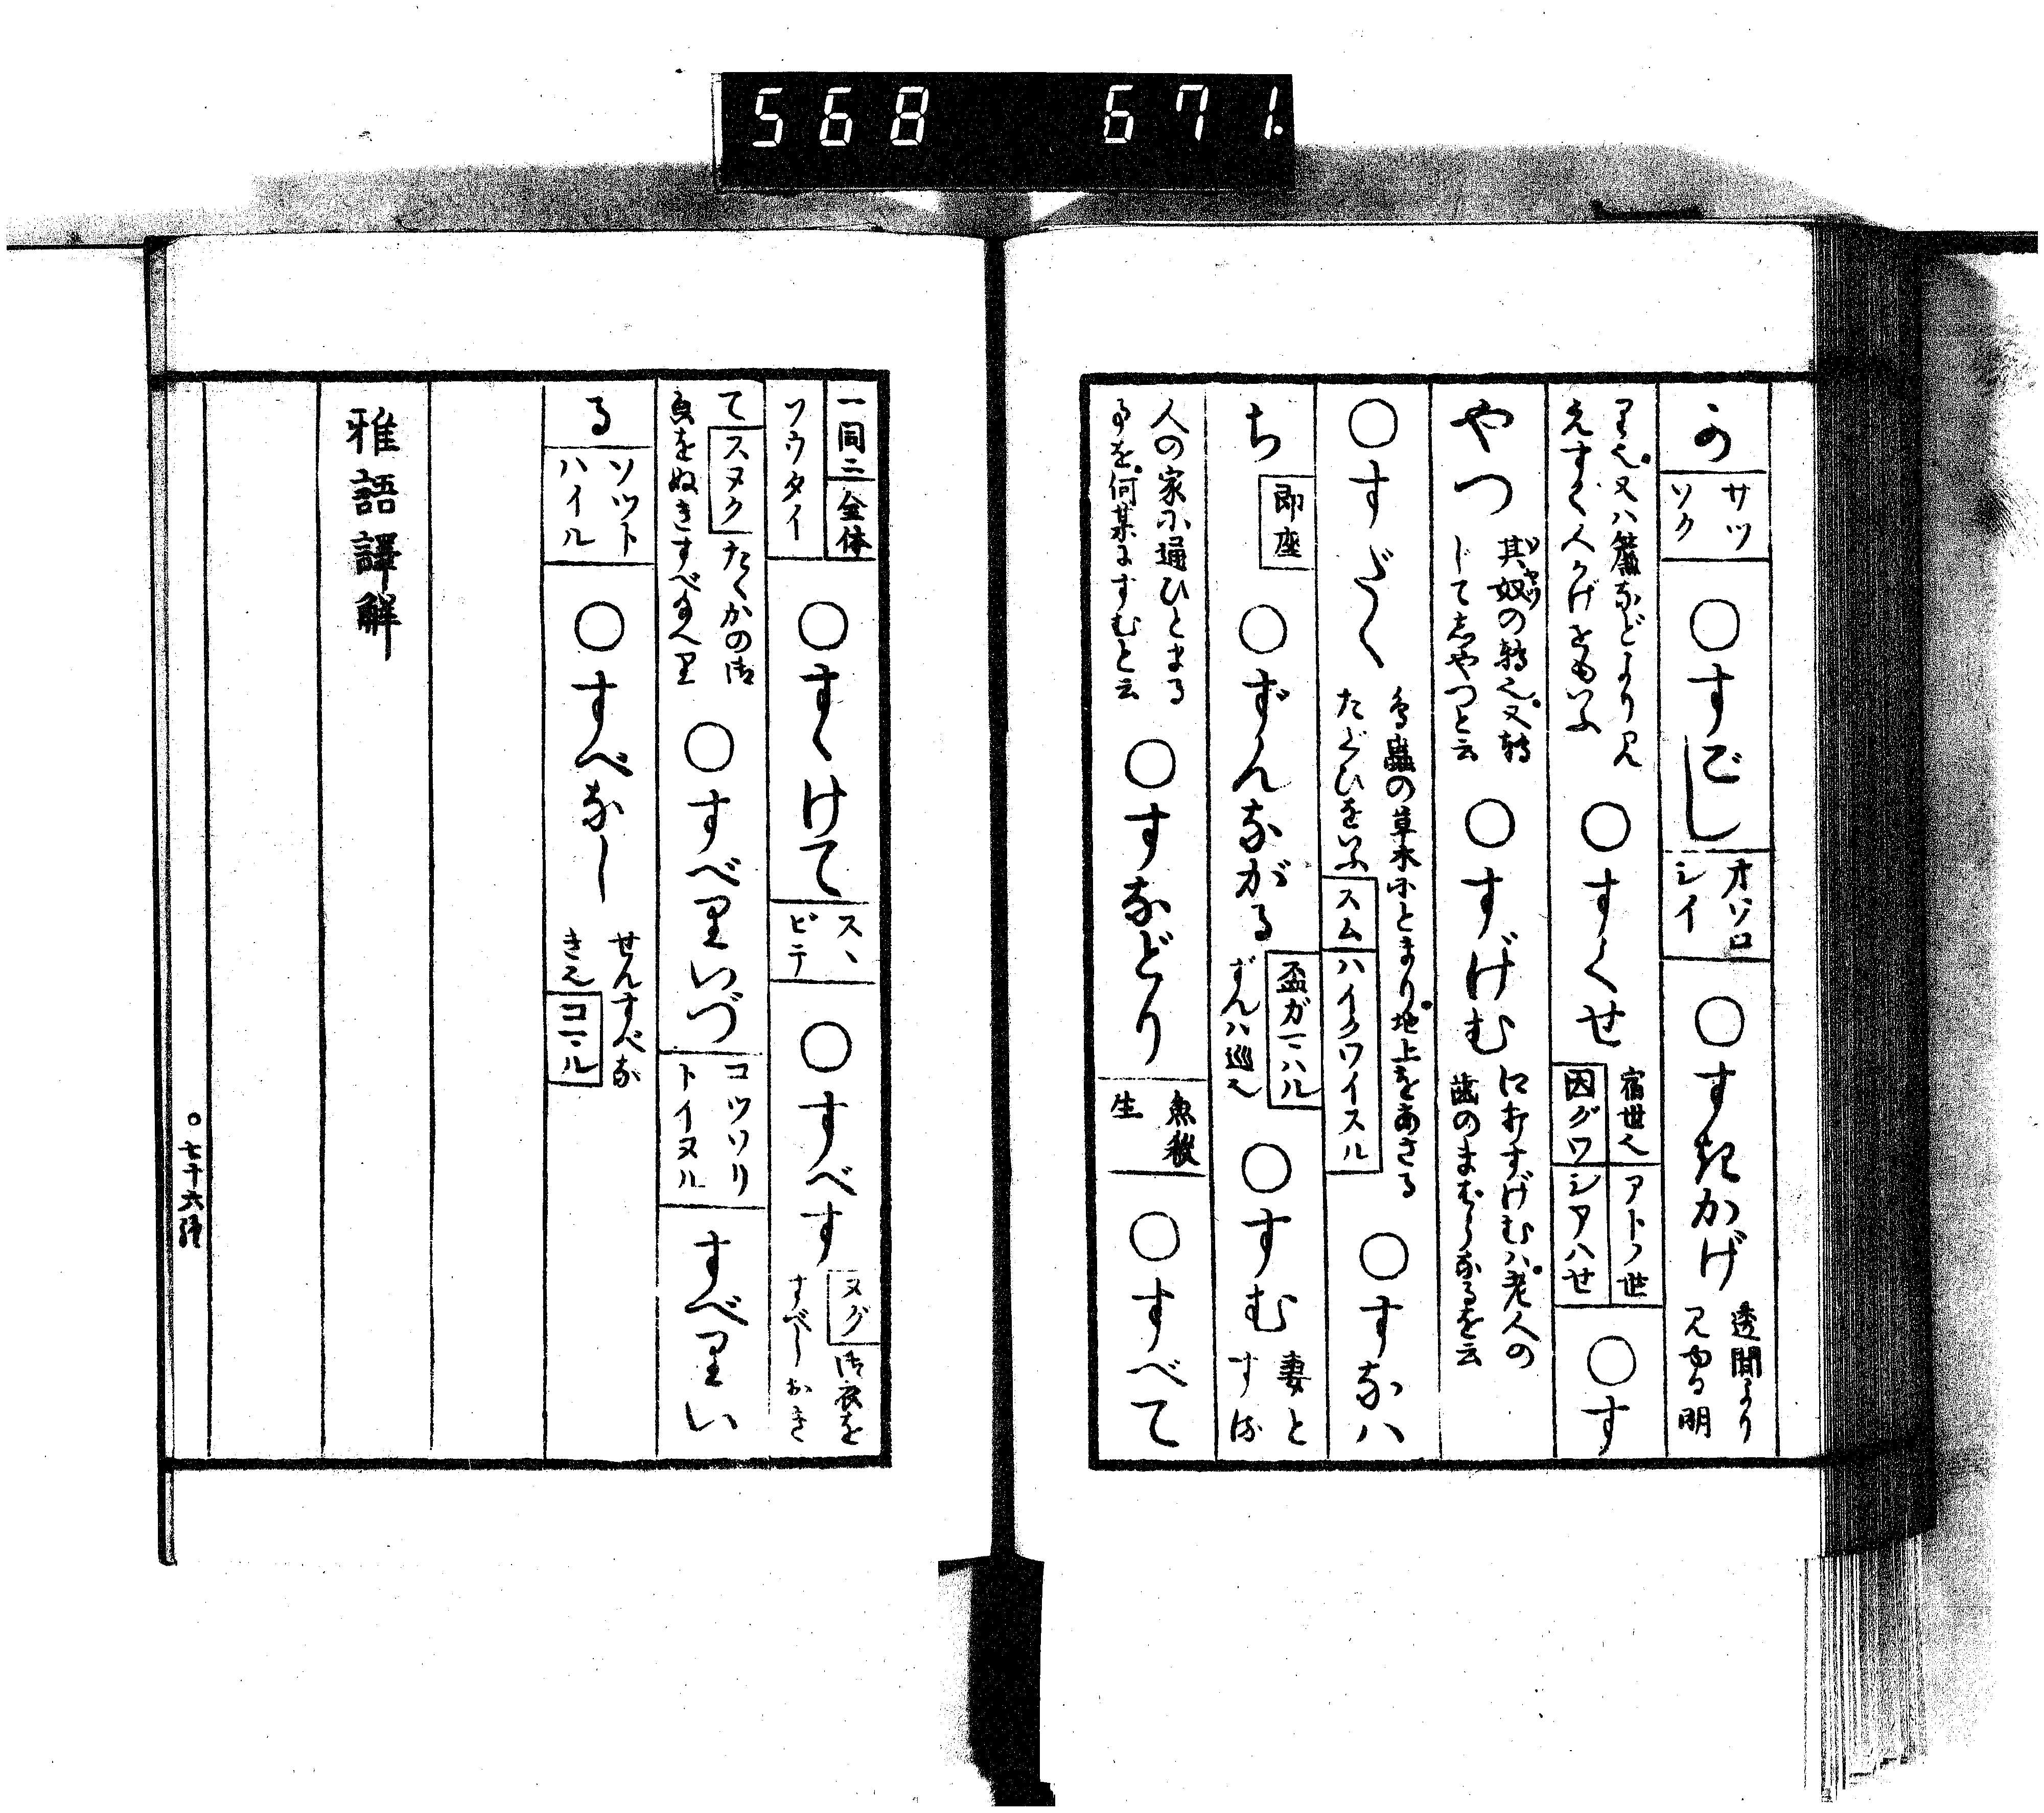 568 671
の サツソク ○すごし オソロシイ ○すきかげ 透間より見ゆる明
りえ又ハ簾などより見えすく人かげをもいふ ○すくせ 宿世え アトノ世 因グワ シアハせ ○す
やつ 其奴の轉え又轉じて志やつと云 ○すげむ 口おすげむハ老人の歯のまばらなるを云
○すだく 鳥蟲の草木にとまり地上をあさるたぐひをいふ スム ハイクワイスル ○すなハ
ち 即座 ○ずんながる 盃ガマハル ずんハ巡え ○すむ 妻とする
人の家に通ひとまるを何某にすむと云 ○すなどり 魚猴生 ○すべて
一同ニ 全体 ソウタイ ○すゝけて スヽビテ ○すべす ヌグ 御衣をすべしおき
て スヌク たくかの御衣をぬきすべすへり ○すべりいづ コツソリトイヌル すべりい
る ソツトハイル ○すべなし せんすべなきえ コマル
雅語譯解
○七十六終